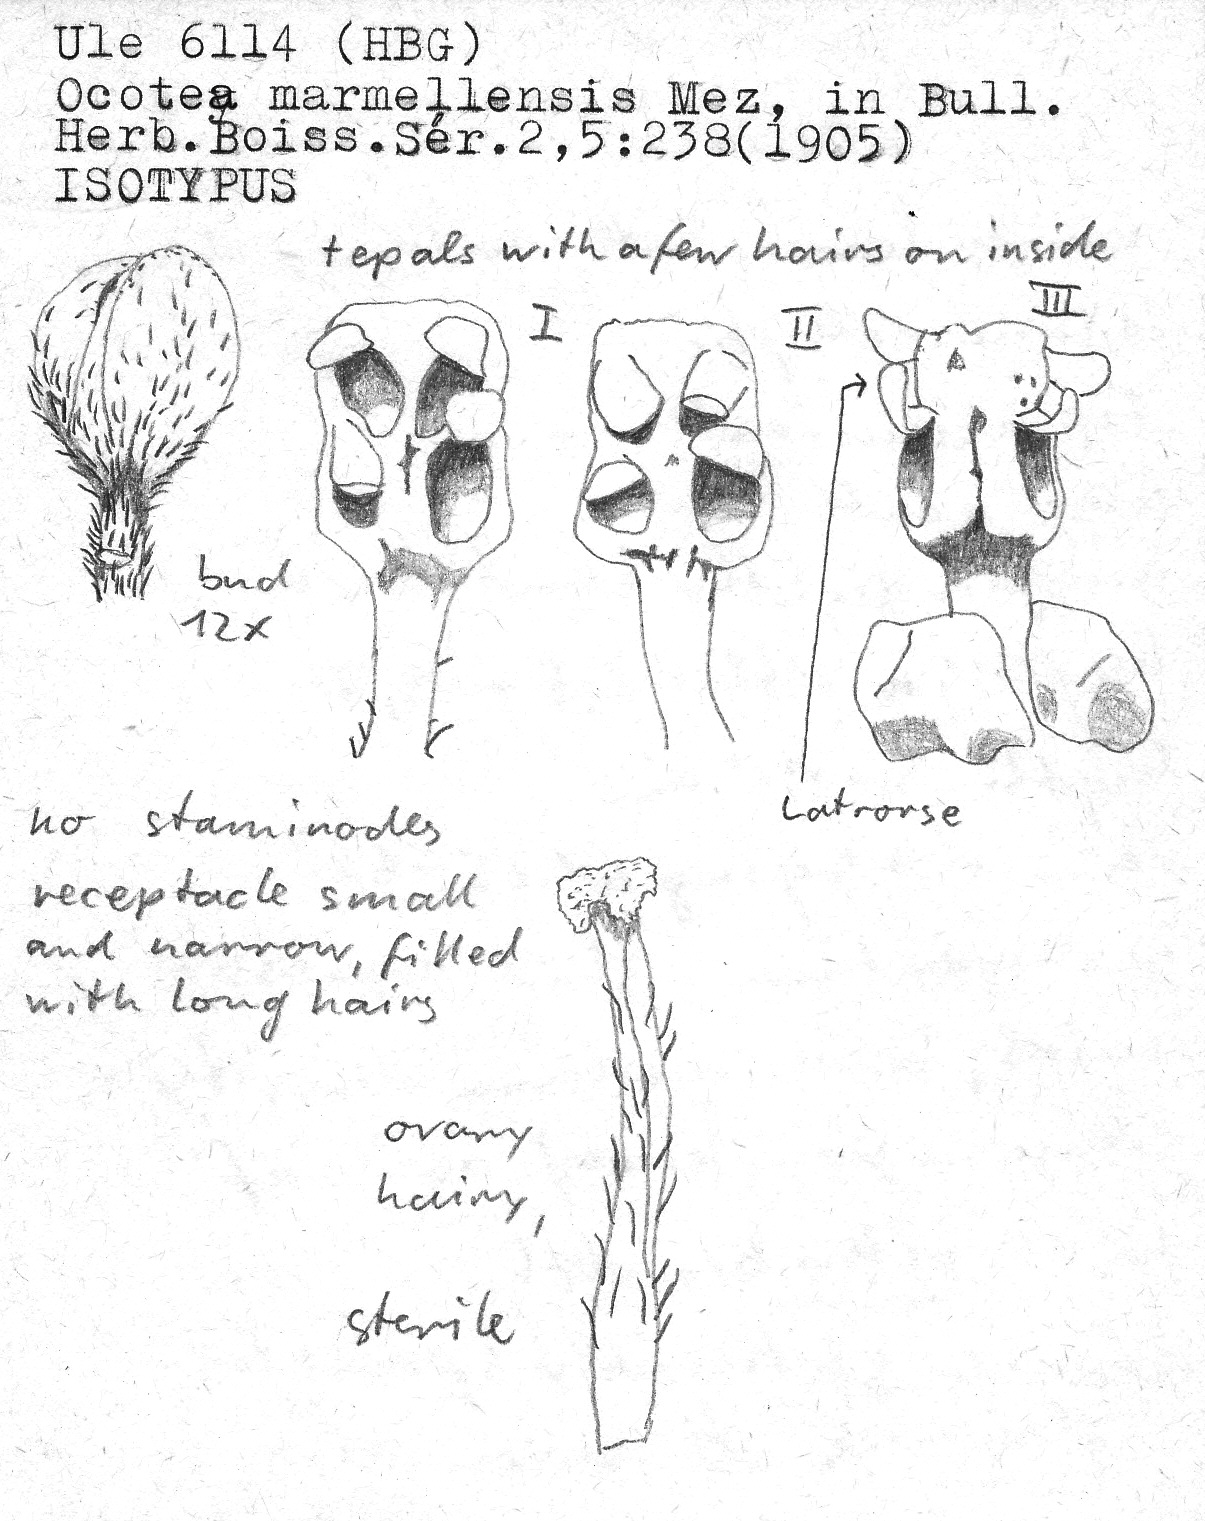 Ule 6114 (HBG)
Ocotea marmellensis Mez, in Bull.
Herb.Boiss.Sér.2,5:238(1905)
ISOTYPUS
tepals with a few hairs on inside
I
II
III
bud
12x
Latrorse
no staminodes
receptacle small
and narrow, filled
with long hairs
ovary
hairy,
sterile